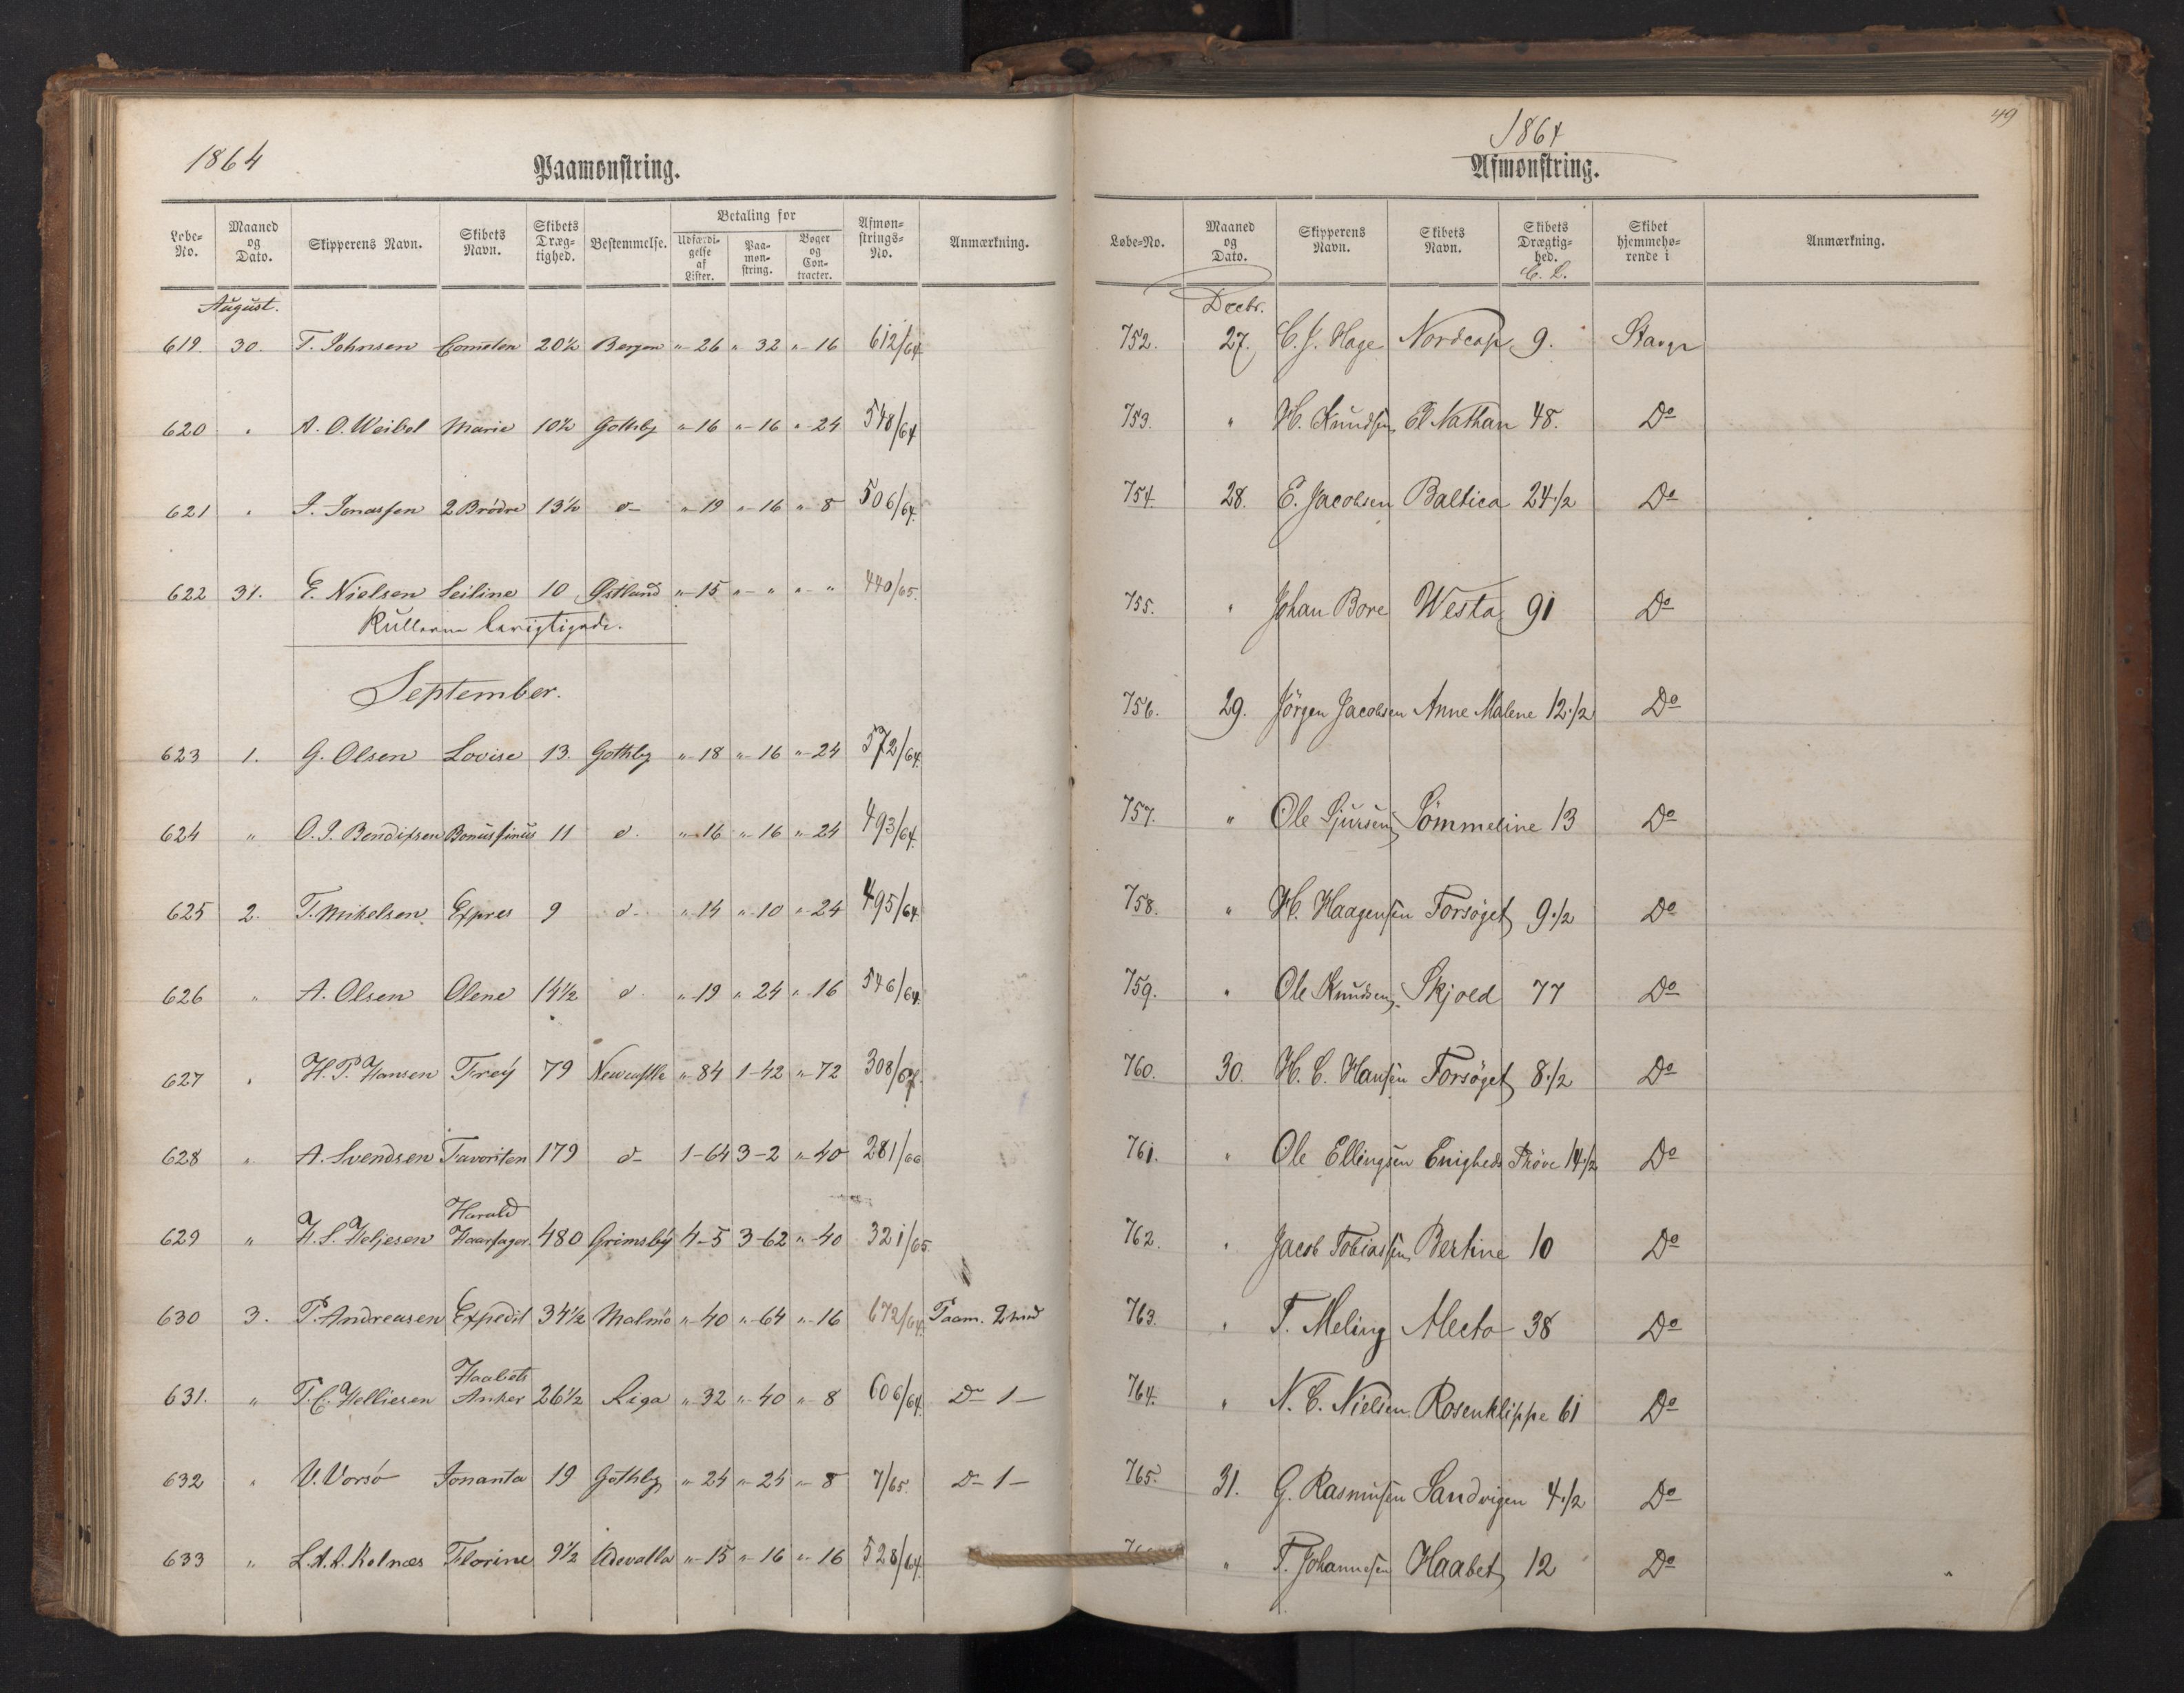 1864
Paamønstring.
Løbe-No. | Maaned og Dato. | Skipperens Navn. | Skibets Navn. | Skibets Dræg-tighed. | Bestemmelse. | Betaling for | Udfærdi-gelse af Lister. | Paa-møn-string. | Bøger og Con-tracter. | Afmøn-strings-No. | Anmærkning.
August.
619. 30. T. Johnsen Cometen 20½ Bergen "-26 " 32 "-16 612/64
620 " A. O. Weibel Marie 10½ Gothbg "-16 "-16 "-24 548/64
621 " J. Jonassen 2 Brödre 13½ d- "-19 "-16 "-8 506/64.
622 31. E. Nielsen Seiline 10 Østland "-15 "-" "-" 440/65.
Rullerne
September.
623 1. G. Olsen Lovise 13. Gothbg "-18 "-16 "-24 572/64.
624 " O. J. Bendixsen 11 d. "-16 "-16 "-24 493/64.
625 2. T. Mikelsen Expres 9 d- "-14 "-10 "-24 495/64
626 " A. Olsen Olene 14½ d "-19 " 24 " 16 546/64.
627 " H. P. Hansen Frey 79 Newcastle "-84 1-42 "-72 308/67.
628 " A. Svendsen Favoriten 179 d- 1-64 3-2 "-40 281/66
629 " H. S. Heljesen Harald Haarfager. 480 Grimsby 4-5 3-62 "-40 321/65.
630 3. P. Andreasen Expedit 34½ Malmö "-40 "-64 "-16 672/64. Paam. 2
631. " T. C. Helliesen Haabets Anker 26½ Riga "-32 "-40 "-8 606/64. D- 1-
632 " V. Vorsö Jonanta 19 Gothbg "-24 "-24 "-8 7/65. D- 1-
633 " L. A. A. Kolnæs Florine 9½ Udevalla "-15 "-16 "-16 528/64.
49
1864
Afmønstring.
Løbe-No. | Maaned og Dato. | Skipperens Navn. | Skibets Navn. | Skibets Drægtig-hed. C. L. | Skibet hjemmehø-rende i | Anmærkning.
Decbr.
752. 27. C. J. Hage Nordcap 9. Stavgr
753. " H. Knudsen El Nathan 48. Do
754. 28. E. Jacobsen Baltica 24 1/2 Do
755. " Johan Bore Westa 91 Do
756. 29. Jörgen Jacobsen Anne Malene 12 1/2 Do
757. " Ole Sjursen Sömmeline 13 Do
758. " H. Haagensen Forsöget 9 1/2 Do
759. " Ole Knudsen Skjold 77 Do
760. 30. H. C. Hansen Forsöget 8 1/2 Do
761. " Ole Ellingsen Enigheds Pröve 14 1/2 Do
762. " Jacob Tobiassen Bertine 10 Do
763. " T. Meling Alecto 38 Do
764. " N. C. Nielsen Rosenklippe 61 Do
765. 31. G. Rasmusen Sandvigen 4 1/2 Do
" T. Johannesen Haabet 12 Do